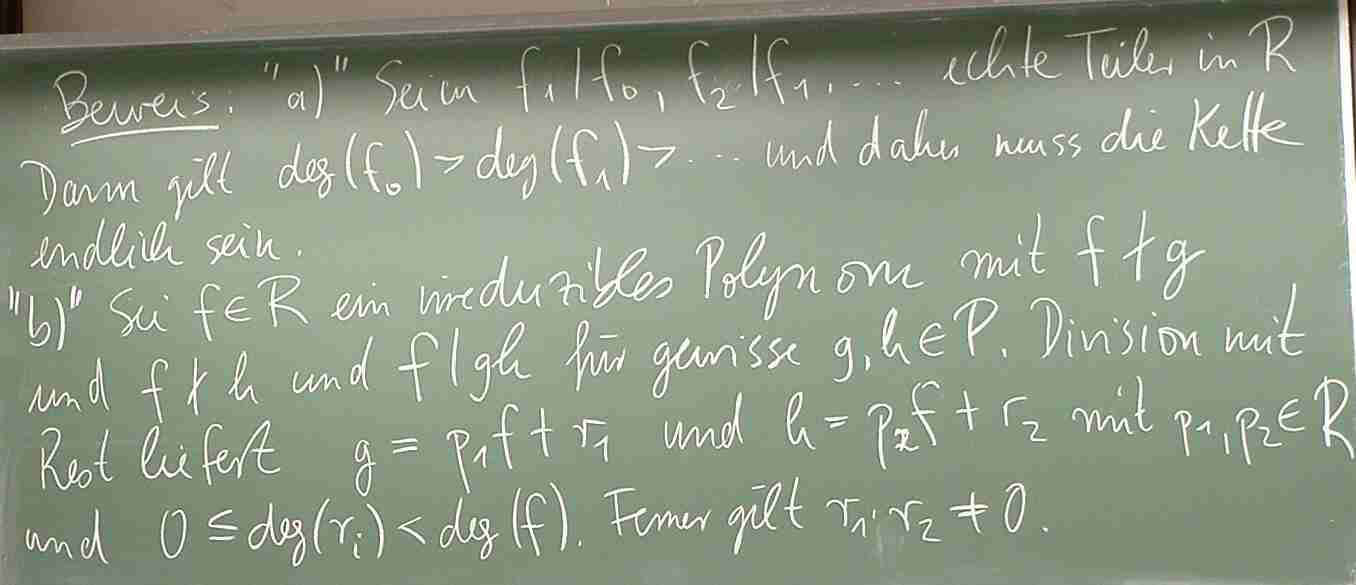 Beweis: "a)" Seien f₁|f₀, f₂|f₁, ... echte Teiler in R
Dann gilt deg(f₀) > deg(f₁) > ... und daher muss die Kette
endlich sein.
"b)" Sei f ∈ R ein irreduzibles Polynom mit f ∤ g
und f ∤ h und f | gh für gewisse g, h ∈ P. Division mit
Rest liefert g = p₁f + r₁ und h = p₂f + r₂ mit p₁, p₂ ∈ R
und 0 ≤ deg(rᵢ) < deg(f). Ferner gilt r₁·r₂ ≠ 0.